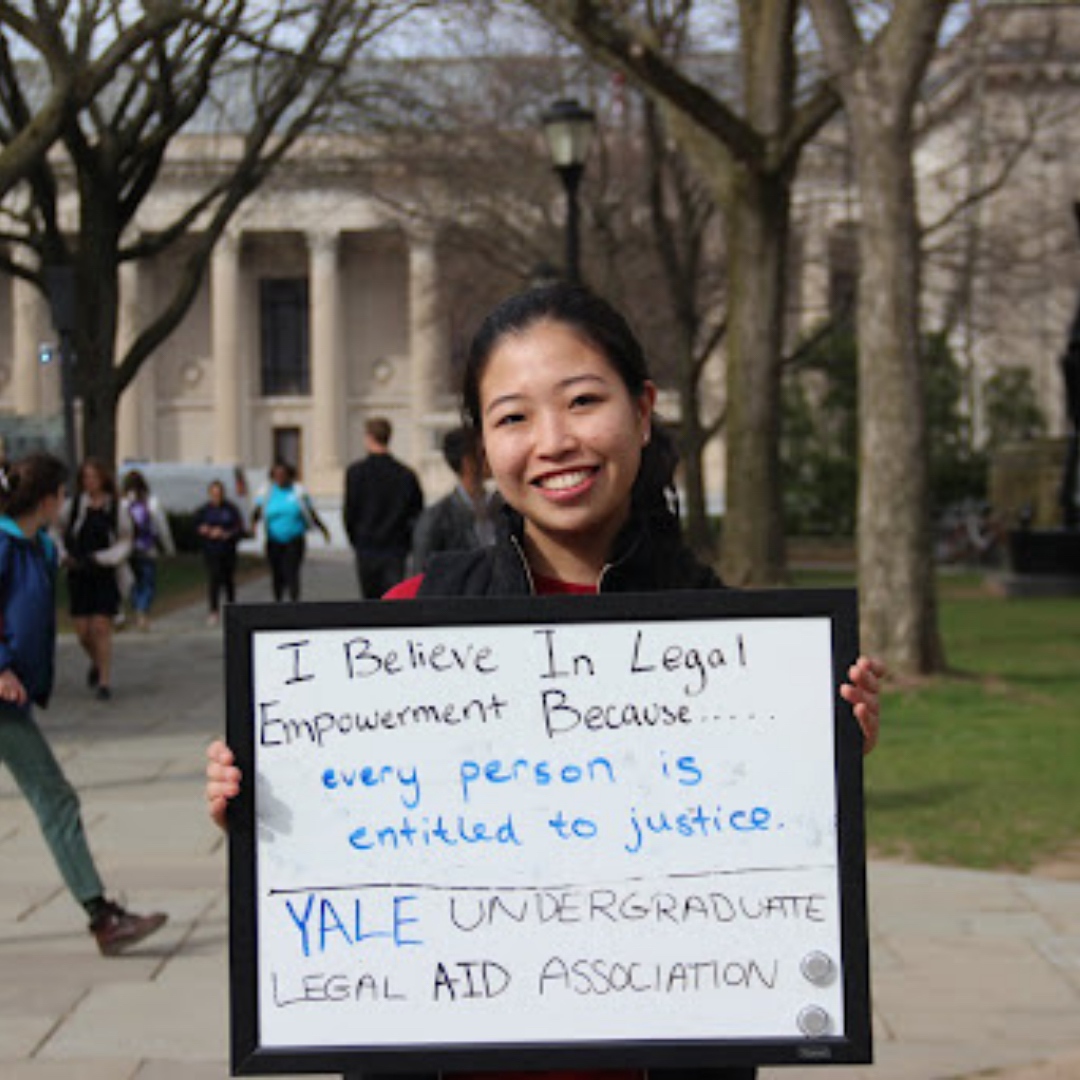 I Believe In Legal
Empowerment Because.....
every person is
entitled to justice.
YALE UNDERGRADUATE
LEGAL AID ASSOCIATION